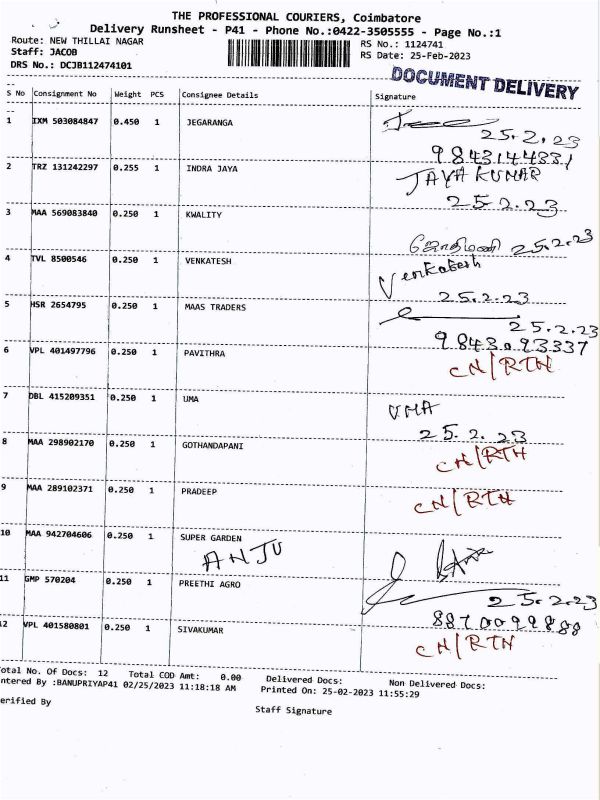 THE PROFESSIONAL COURIERS, Coimbatore
Delivery Runsheet - P41 - Phone No.:0422-3505555 - Page No.:1
Route: NEW THILLAI NAGAR
RS No.: 1124741
Staff: JACOB
RS Date: 25-Feb-2023
DRS No.: DCJB112474101
DOCUMENT DELIVERY
S No Consignment No Weight PCS Consignee Details Signature
1 IXM 503084847 0.450 1 JEGARANGA
25.2.23
9843144331
2 TRZ 131242297 0.255 1 INDRA JAYA JAYAKUMAR
25.2.23
3 MAA 569083840 0.250 1 KWALITY
ஜோதிமணி 25.2.23
4 TVL 8500546 0.250 1 VENKATESH Venkatesh
25.2.23
5 HSR 2654795 0.250 1 MAAS TRADERS
25.2.23
9843093337
6 VPL 401497796 0.250 1 PAVITHRA CN/RTN
7 DBL 415209351 0.250 1 UMA UMA
25.2.23
8 MAA 298902170 0.250 1 GOTHANDAPANI CN/RTN
9 MAA 289102371 0.250 1 PRADEEP CN/RTN
10 MAA 942704606 0.250 1 SUPER GARDEN
ANJU
11 GMP 570204 0.250 1 PREETHI AGRO
25.2.23
8870099888
12 VPL 401580801 0.250 1 SIVAKUMAR CN/RTN
otal No. Of Docs: 12 Total COD Amt: 0.00 Delivered Docs: Non Delivered Docs:
ntered By :BANUPRIYAP41 02/25/2023 11:18:18 AM Printed On: 25-02-2023 11:55:29
erified By
Staff Signature